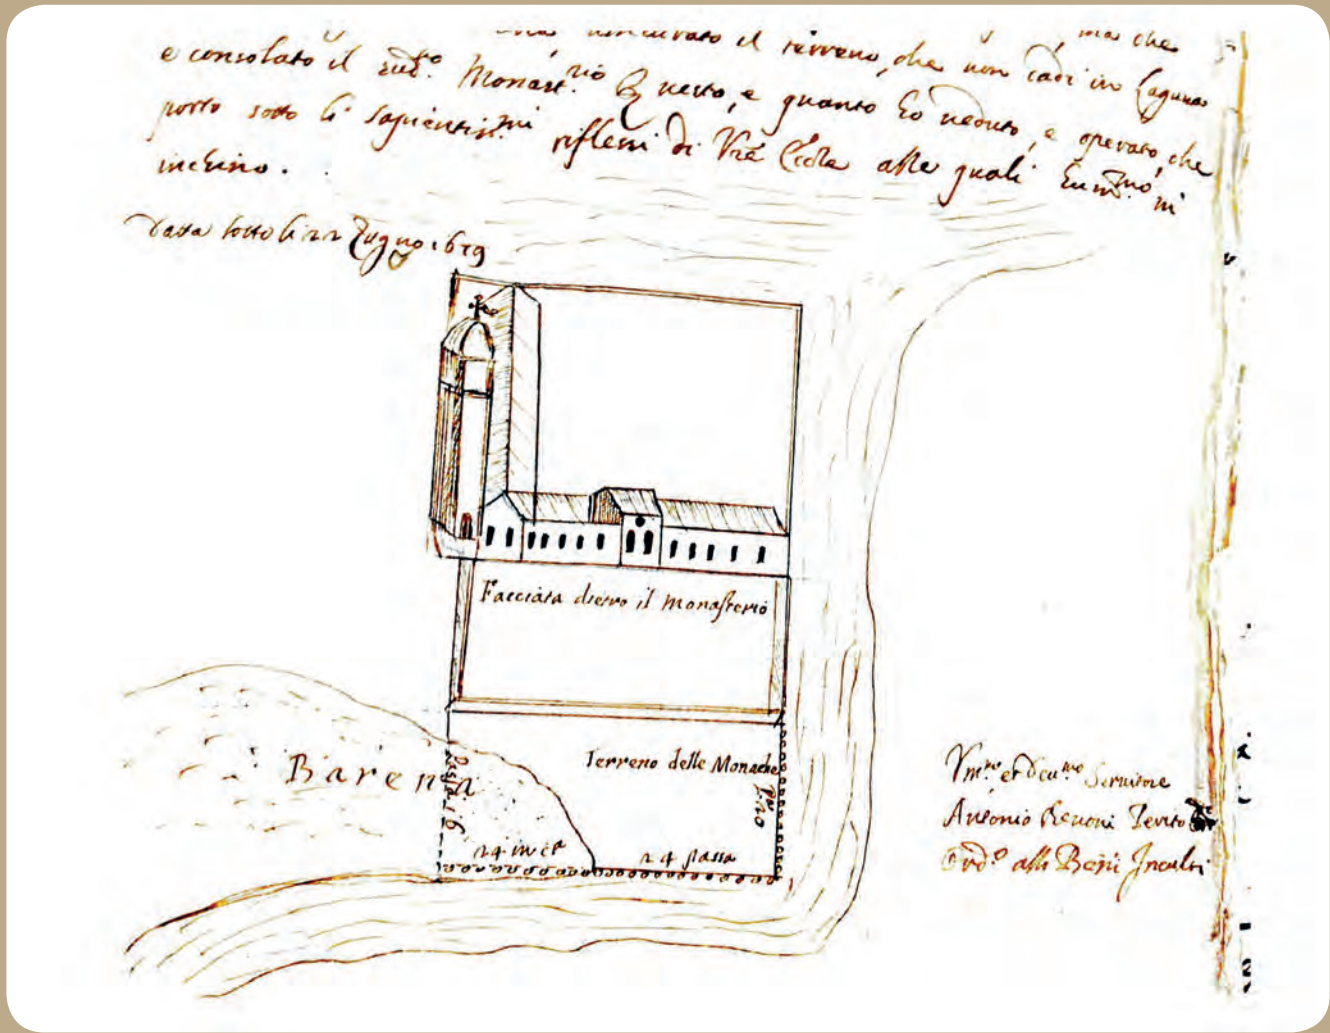 il terreno, che non cadi in Laguna ma che
e consolato il sud.to Monast.rio Questo, e quanto ho veduto, e operato, che
porto sotto li sapientiss.mi riflessi di Vre Ecc.ze alle quali hum.mo mi
inchino.
Data sotto li 22 Zugno 1679
Facciata dietro il Monasterio
Barena
Terreno delle Monache
passa 16
p. 20
24 in ca
24 passa
Servitore
Antonio Benoni Perito
Ord.o alli Beni Inculti